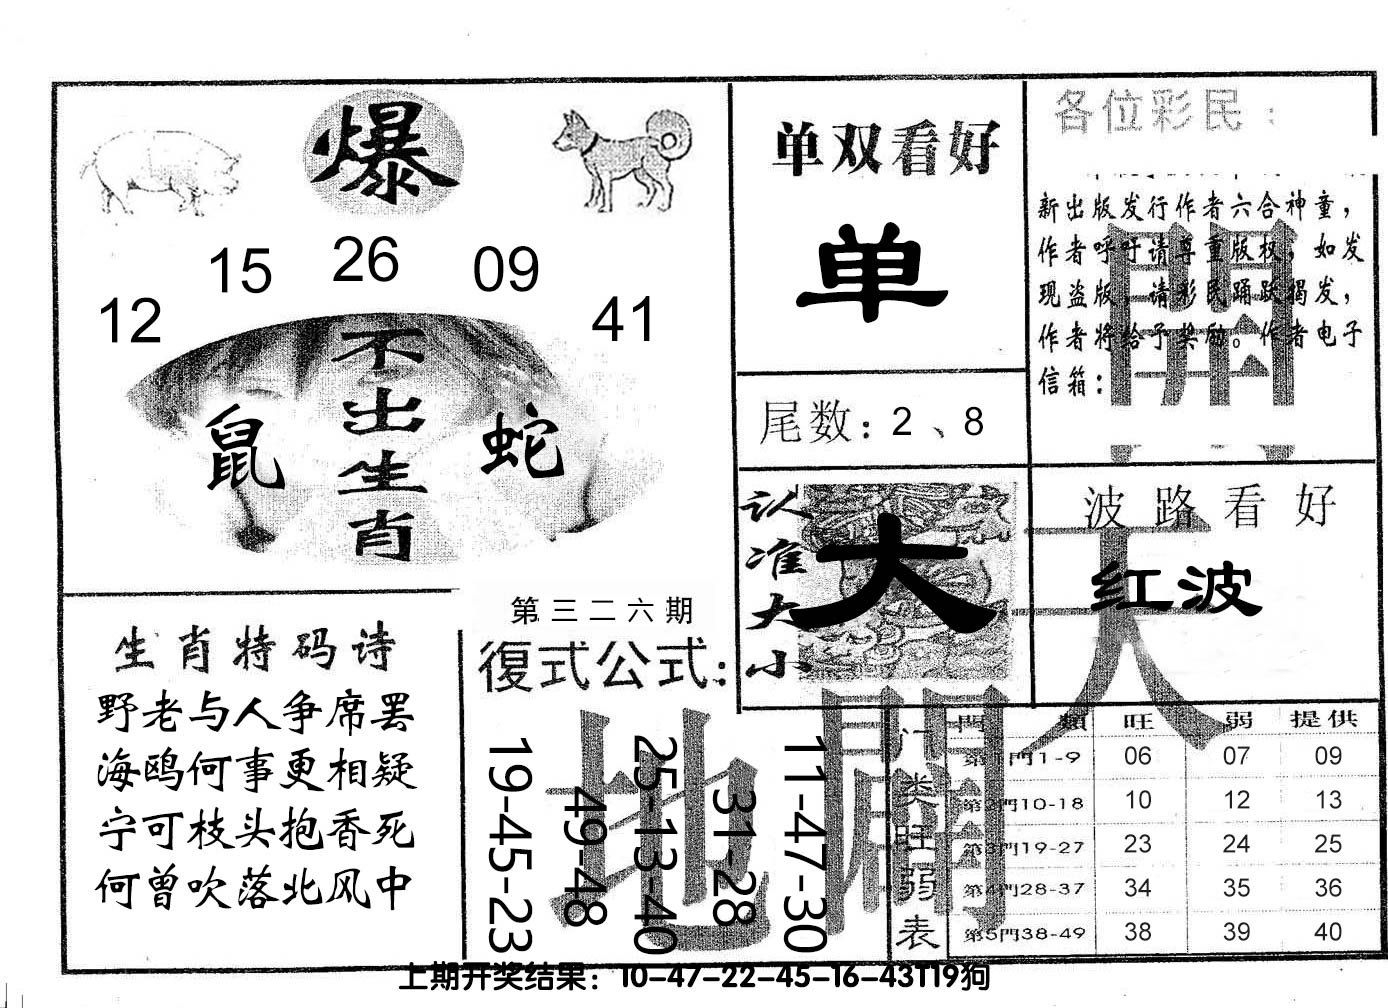 爆
12
15
26
09
41
不出生肖
鼠
蛇
单双看好
单
尾数：2、8
各位彩民：
新出版发行作者六合神童，
作者呼吁请尊重版权，如发
现盗版，请彩民踊跃揭发，
作者将给予奖励。作者电子
信箱：
開
天
地
闢
认准大小
大
波路看好
红波
生肖特码诗
野老与人争席罢
海鸥何事更相疑
宁可枝头抱香死
何曾吹落北风中
第三二六期
復式公式：
19-45-23
49-48
25-13-40
31-28
11-47-30
门类旺弱表
門類 旺 弱 提供
第1門1-9 06 07 09
第2門10-18 10 12 13
第3門19-27 23 24 25
第4門28-37 34 35 36
第5門38-49 38 39 40
上期开奖结果：10-47-22-45-16-43T19狗